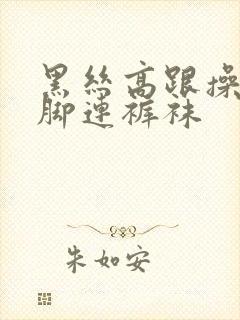 黑丝高跟操
脚连裤袜
朱如安